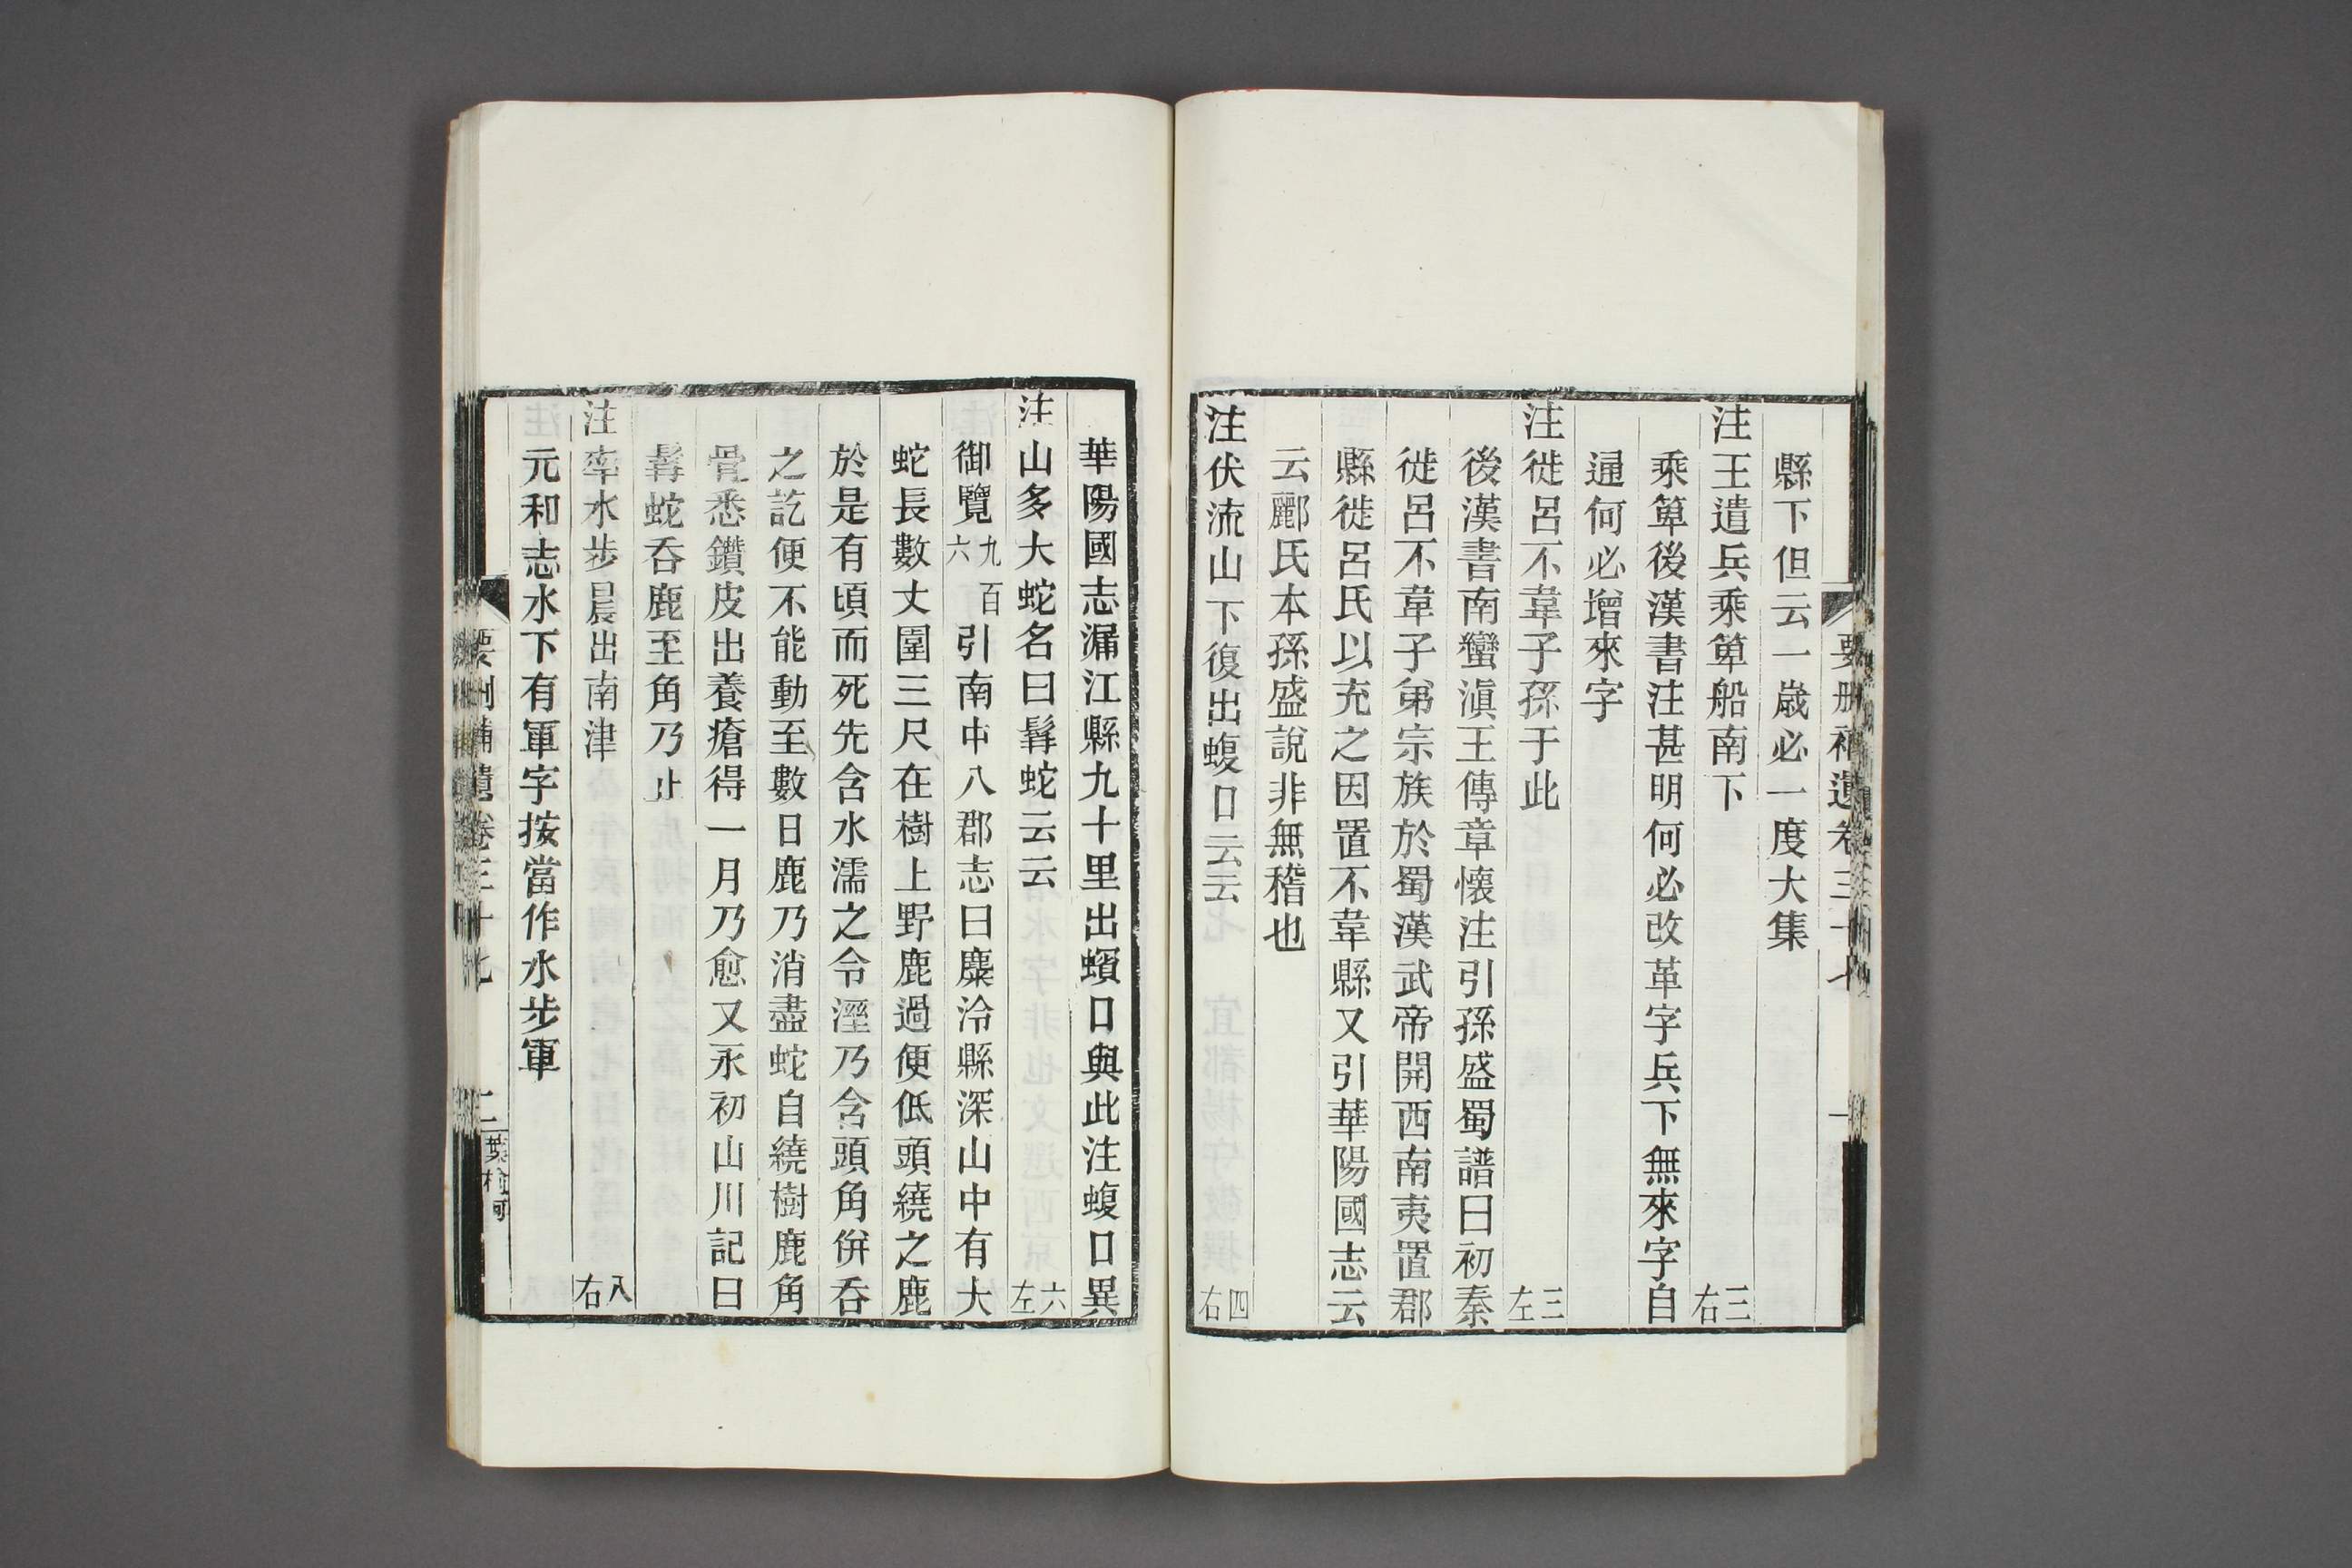 要刪補遺卷三十七
一
縣下但云一歲必一度大集
注王遣兵乘箄船南下 三右
乘箄後漢書注甚明何必改革字兵下無來字自
通何必增來字
注徙呂不韋子孫于此 三左
後漢書南蠻滇王傳章懷注引孫盛蜀譜曰初秦
徙呂不韋子弟宗族於蜀漢武帝開西南夷置郡
縣徙呂氏以充之因置不韋縣又引華陽國志云
云酈氏本孫盛說非無稽也
注伏流山下復出蝮口云云 四右
華陽國志漏江縣九十里出蠙口與此注蝮口異
注山多大蛇名曰髯蛇云云 六左
御覽九百六引南中八郡志曰麋泠縣深山中有大
蛇長數丈圍三尺在樹上野鹿過便低頭繞之鹿
於是有頃而死先含水濡之令溼乃含頭角併吞
之訖便不能動至數日鹿乃消盡蛇自繞樹鹿角
骨悉鑽皮出養瘡得一月乃愈又永初山川記曰
髯蛇吞鹿至角乃止
注率水步晨出南津 八右
元和志水下有軍字按當作水步軍
要刪補遺卷三十七
二
葉榆河